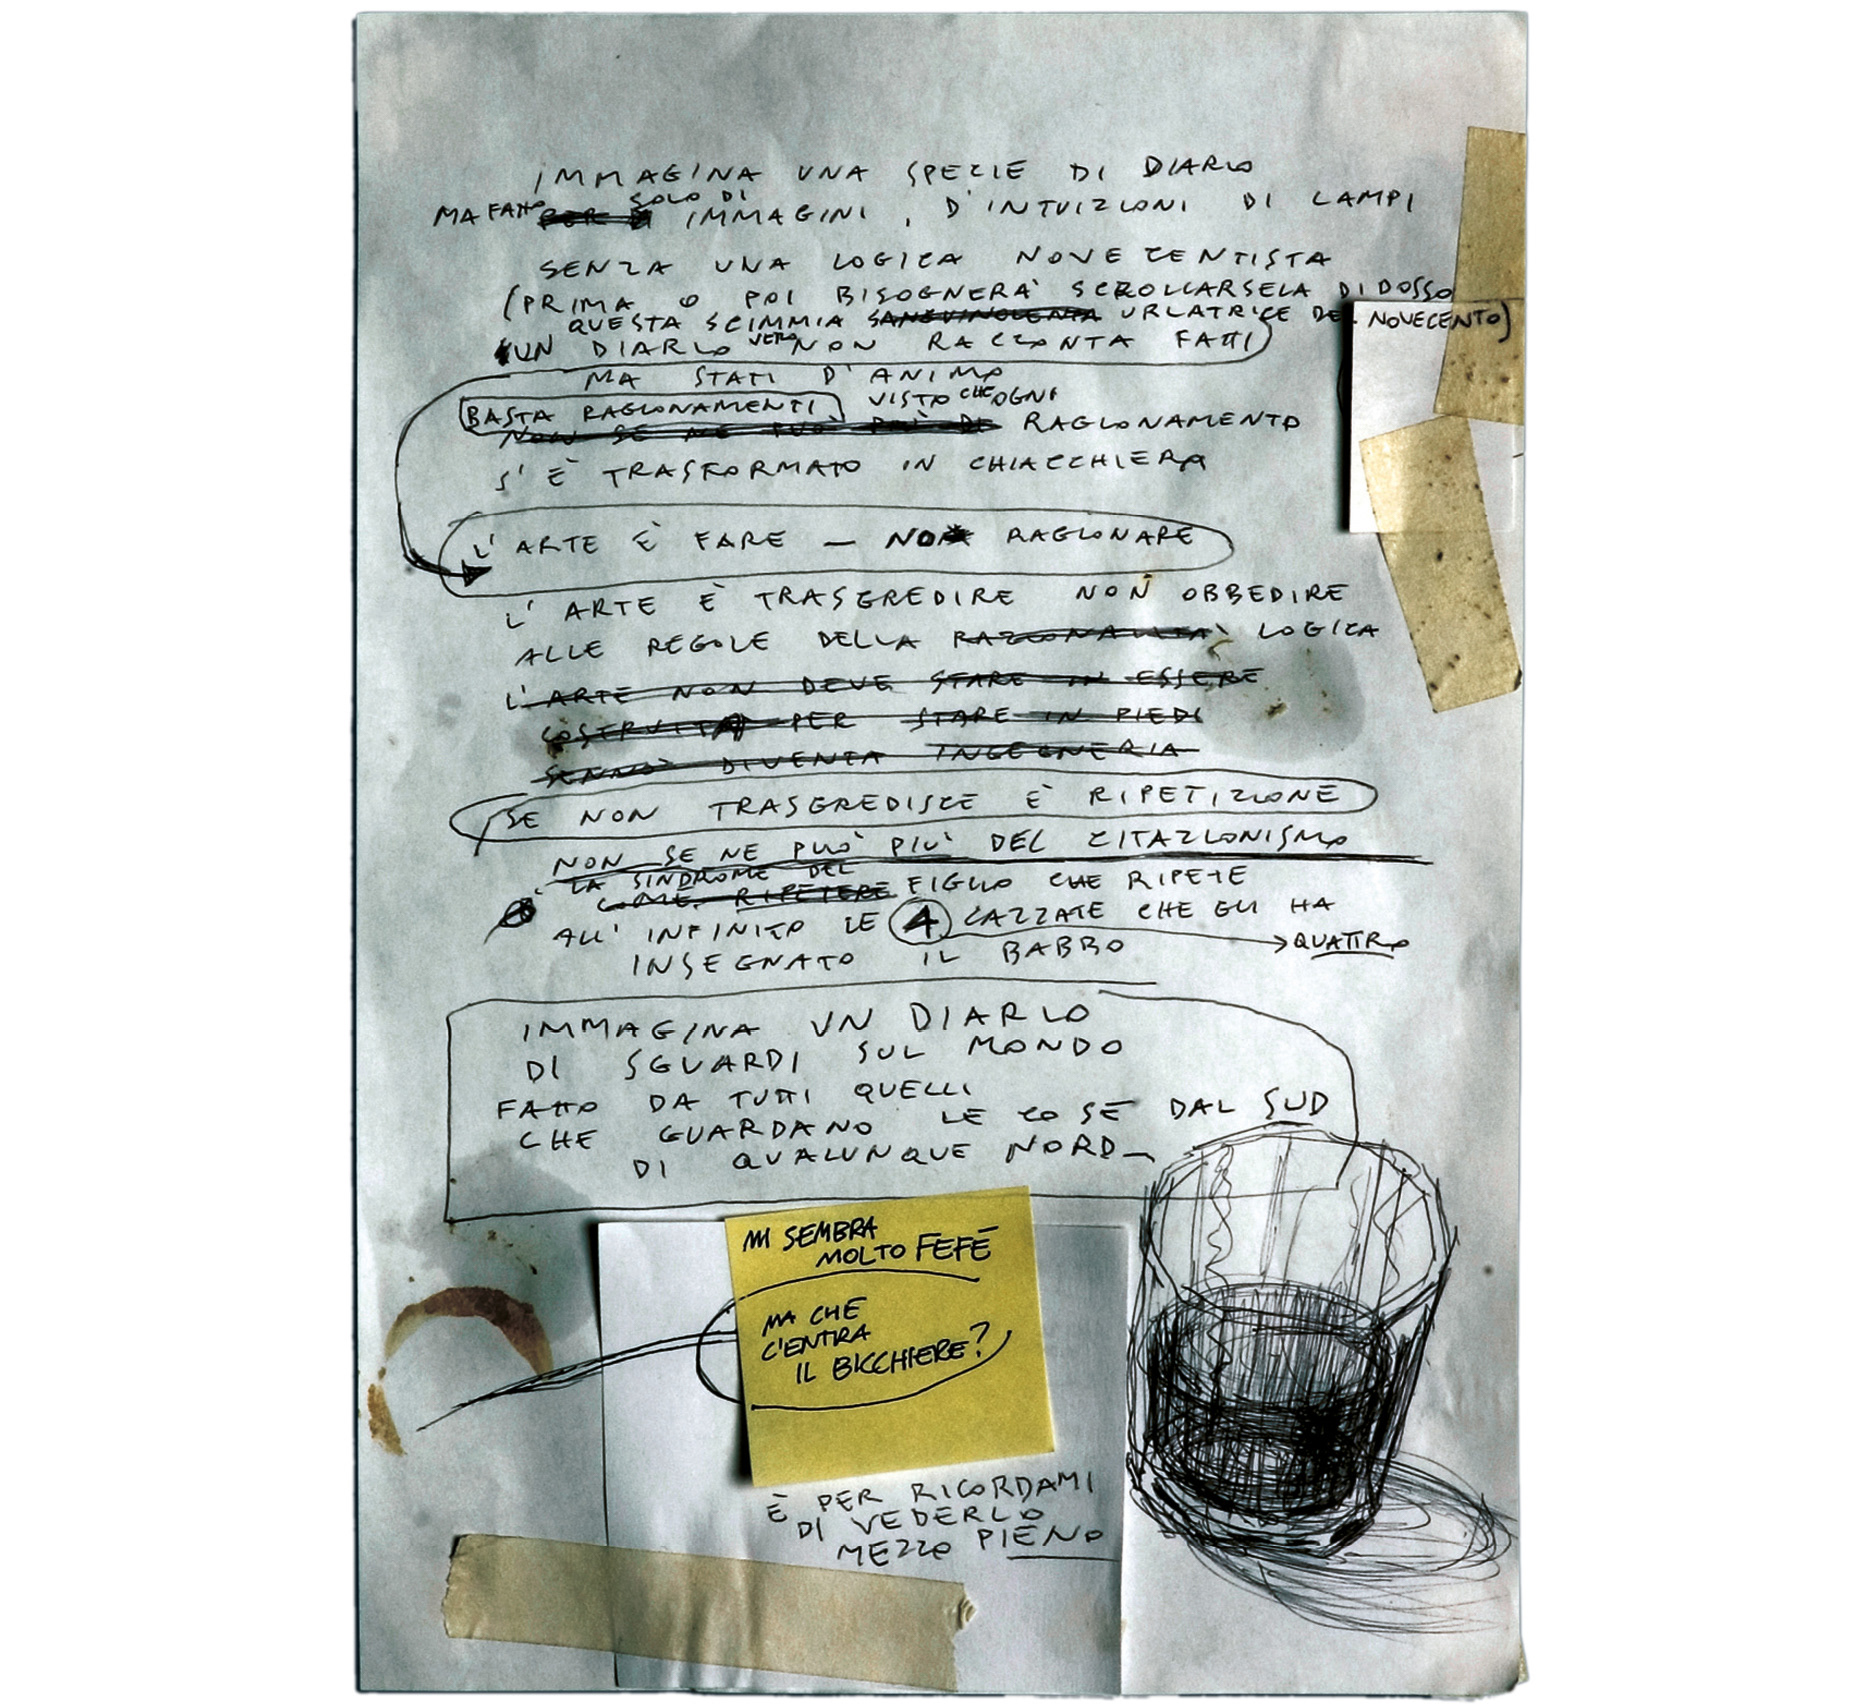 IMMAGINA UNA SPECIE DI DIARIO
MA FATTO PER SOLO DI IMMAGINI, D'INTUIZIONI DI LAMPI
SENZA UNA LOGICA NOVECENTISTA
(PRIMA O POI BISOGNERÀ SCROLLARSELA DI DOSSO
QUESTA SCIMMIA SANGUINOLENTA URLATRICE DEL NOVECENTO)
UN DIARIO VERO NON RACCONTA FATTI
MA STATI D'ANIMO
BASTA RAGIONAMENTI VISTO CHE OGNI
NON SE NE PUÒ PIÙ DI RAGIONAMENTO
S'È TRASFORMATO IN CHIACCHIERA
L'ARTE È FARE - NON RAGIONARE
L'ARTE È TRASGREDIRE NON OBBEDIRE
ALLE REGOLE DELLA RAZIONALITÀ LOGICA
L'ARTE NON DEVE STARE IN ESSERE
COSTRUITA PER STARE IN PIEDI
SENNÒ DIVENTA INGEGNERIA
SE NON TRASGREDISCE È RIPETIZIONE
NON SE NE PUÒ PIÙ DEL CITAZIONISMO
LA SINDROME DEL
COME RIPETERE FIGLIO CHE RIPETE
ALL'INFINITO LE 4 CAZZATE CHE GLI HA
QUATTRO
INSEGNATO IL BABBO
IMMAGINA UN DIARIO
DI SGUARDI SUL MONDO
FATTO DA TUTTI QUELLI
CHE GUARDANO LE COSE DAL SUD
DI QUALUNQUE NORD-
MI SEMBRA
MOLTO FEFÈ
MA CHE
C'ENTRA
IL BICCHIERE?
È PER RICORDAMI
DI VEDERLO
MEZZO PIENO